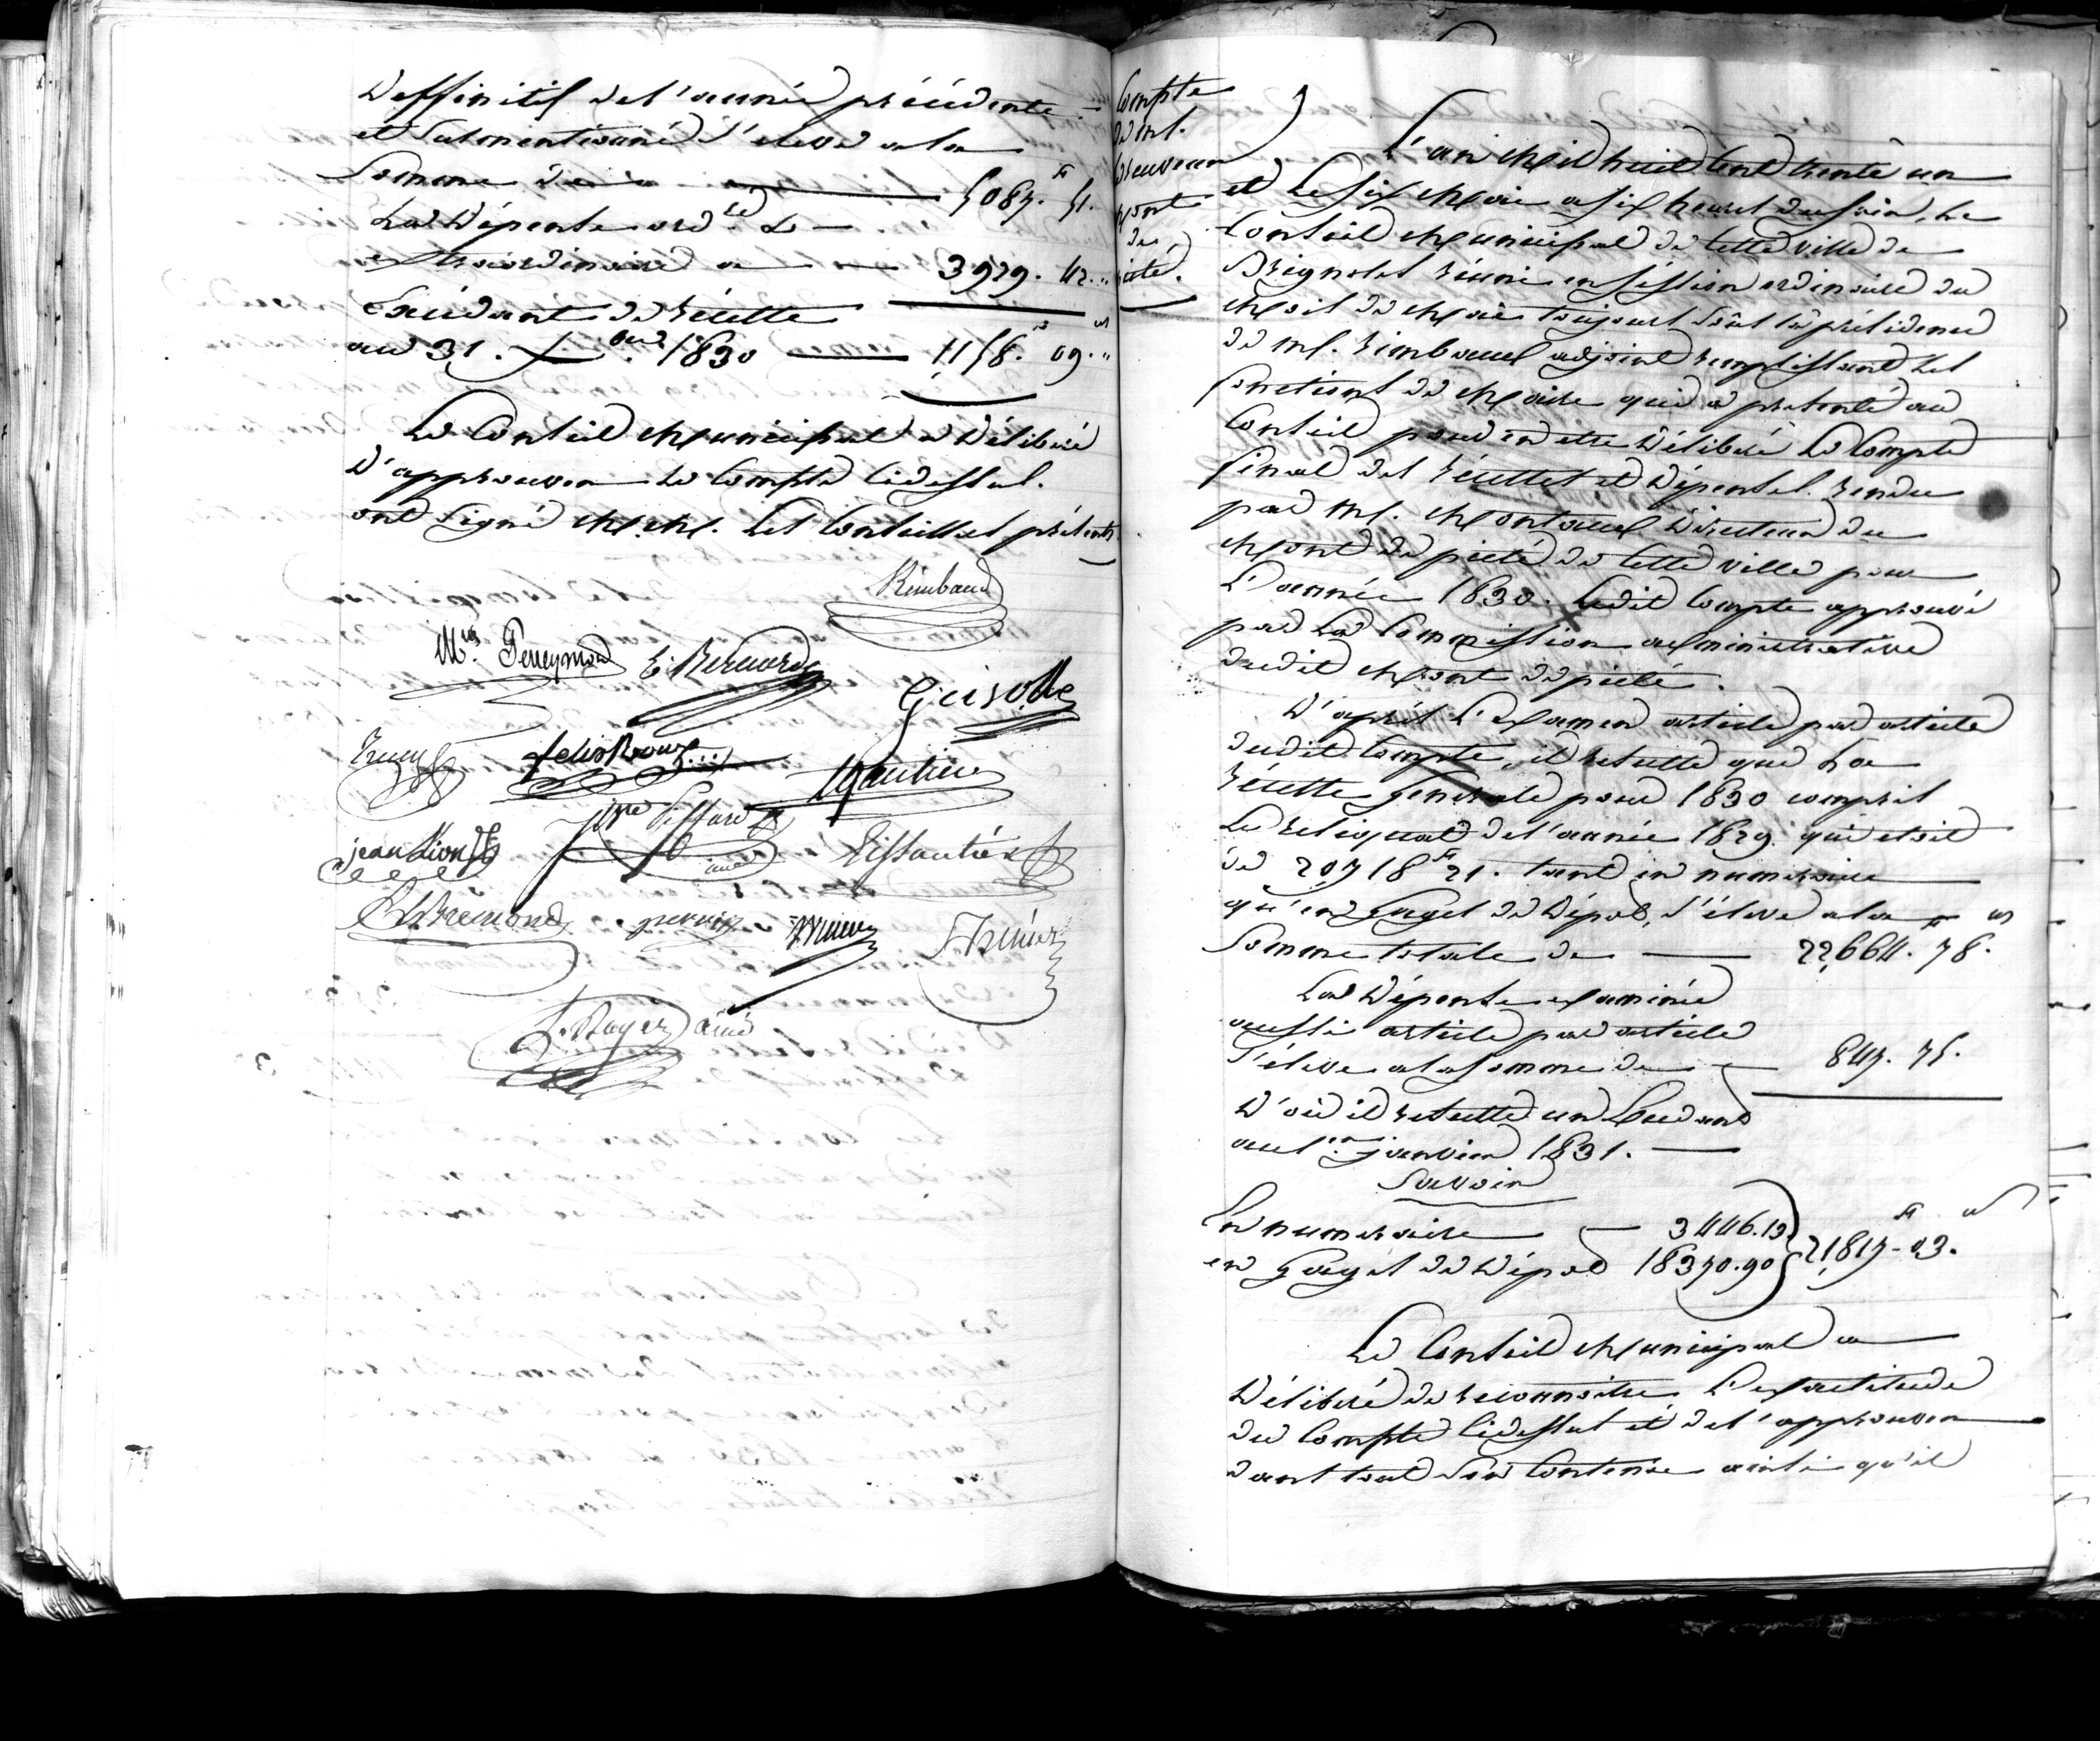 Deffinitif de l'année précédente
et Susmentionné s'eleve a la
Somme de 5087. 51.
La Dépense ord.re &
extraordinaire a 3929. 42.
Exédant de Récette
au 31. Xbre 1830 1,158. 09.
Le Conseil Municipal a Délibéré
D'approuver le Compte Cidessus.
ont Signé MM. Les Conseillers présents
Rimbaud
M.us Peneymond E. Bernard
Grisolle
felix Roux
Gautier
jean Lion
J.ph Piffard ainé
Tissautier
Bremond
Trucy
L. Boyer ainé
Compte
de M.
pont
de
piété.
L'an Mil huit Cent trente un
et Le six Mai a six heures du soir, Le
Conseil Municipal de Cette ville de
Brignoles Réuni en session ordinaire du
Mois de Mai toujours sous la présidence
de M. Rimbaud adjoint remplissant Les
fonctions de Maire qui a présenté au
Conseil pour en etre Délibéré Le Compte
final des Récettes et Dépenses. Rendu
par M. Montaud Directeur du
Mont de piété de Cette ville pour
L'année 1830. Ledit Compte approuvé
par La Commission administrative
dudit Mont de piété.
D'après L'examen article par article
dudit Compte, il Resulte que La
Récette generale pour 1830 compris
Le Reliquat de l'année 1829. qui etoit
de 20,718 F 21. tant en numeraire
qu'en Gages de Dépot, s'éleve a la
Somme totale de 22,664. 78.
La Dépense examinée
aussi article par article
s'éleve a la somme de 847. 75.
D'où il Resulte un Exédant
au 1.er janvier 1831.
Savoir
En numeraire 3446.13
en Gages de Dépot 18370.90 21,817 - 03.
Le Conseil Municipal a
Délibéré de Reconnoitre L'exactitude
du Compte Cidessus et de l'approuver
dans tout Son Contenu ainsi qu'il